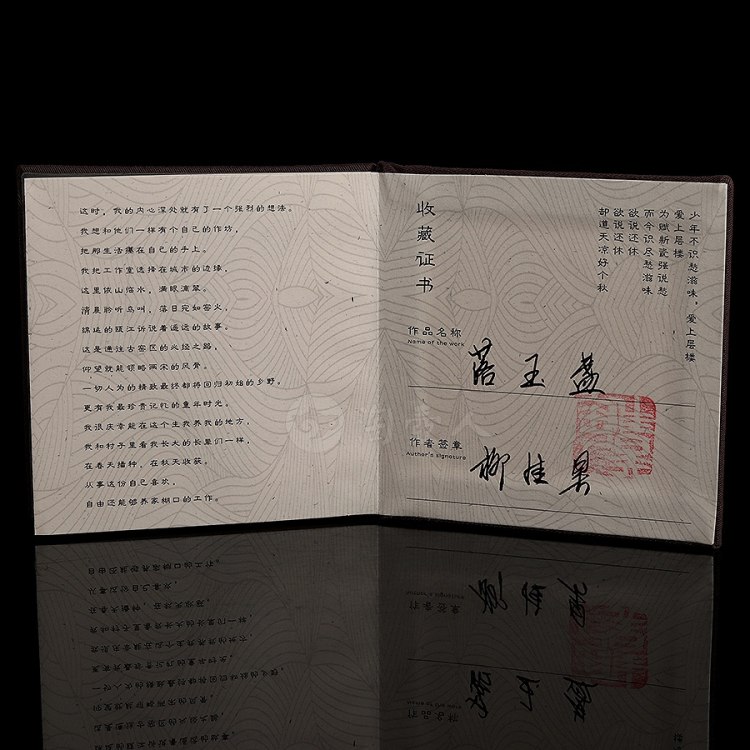 这时，我的内心深处就有了一个强烈的想法。
我想和他们一样有个自己的作坊，
把那生活攥在自己的手上。
我把工作室选择在城市的边缘，
这里依山临水，满眼滴翠。
清晨聆听鸟叫，落日宛如窑火，
绵延的瓯江诉说着遥远的故事。
这是通往古窑区的必经之路，
仰望就能领略两宋的风骨。
一切人为的精致最终都将回归初始的乡野，
更有我最珍贵记忆的童年时光。
我很庆幸能在这个生我养我的地方，
我和村子里看我长大的长辈们一样，
在春天播种，在秋天收获。
从事这份自己喜欢，
自由还能够养家糊口的工作。
少年不识愁滋味，爱上层楼
爱上层楼
为赋新瓷强说愁
而今识尽愁滋味
欲说还休
欲说还休
都道天凉好个秋
收藏证书
作品名称
Name of the work
玉盏
作者签章
Author's signature
柳佳